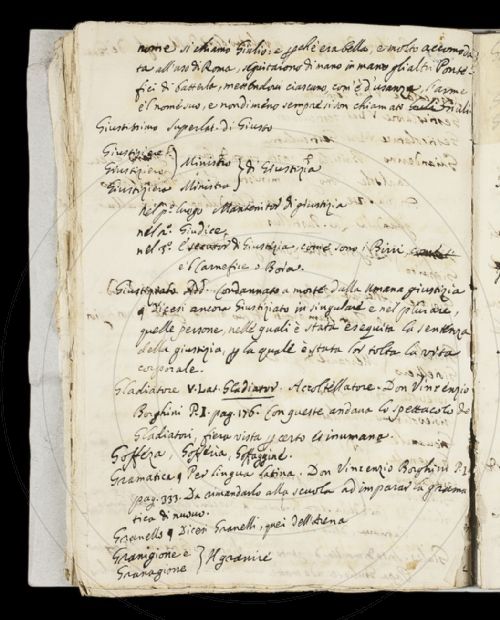 nome si chiamò Giulio; e p che era bella, e molto accomoda
ta all'uso di Roma, seguitarono di mano in mano gli altri Ponte-
fici di battala, mettendovi ciascuno, com'è d'usanza, l'arme
e'l nome suo, e nondimeno sempre si son chiamate Giulii
Giustissimo superlat. di Giusto
Giustiziere
Giustiziero Ministro di Giustizia
Giustiziere Ministro
nel p.º luogo Mantenitor di giustizia
nel 2.º Giudice,
nel 3.º esecutor di Giustizia, come sono i Birri
e'l Carnefice o Boia.
Giustiziato Add. Condannato a morte dalla umana giustizia
Dicesi ancora Giustiziato in singulare e nel plurare,
quelle persone, nelle quali è stata eseguita la sentenza
della giustizia, p la quale è stata lor tolta la vita
corporale.
Gladiatore V. Lat. Gladiator. Accoltellatore. Don Vincenzio
Borghini P. I. pag. 176. Con queste andava lo spettacolo de
Gladiatori, fiera vista p certo et inumana.
Goffezza, Gofferia, Goffaggine.
Gramatica Per lingua latina. Don Vincenzio Borghini P. I.
pag. 333. Da rimandarlo alla scuola ad imparar la grama
tica di nuovo.
Granello Dicesi Granelli, quei dell'Arena
Granigione e
Granagione Il granire